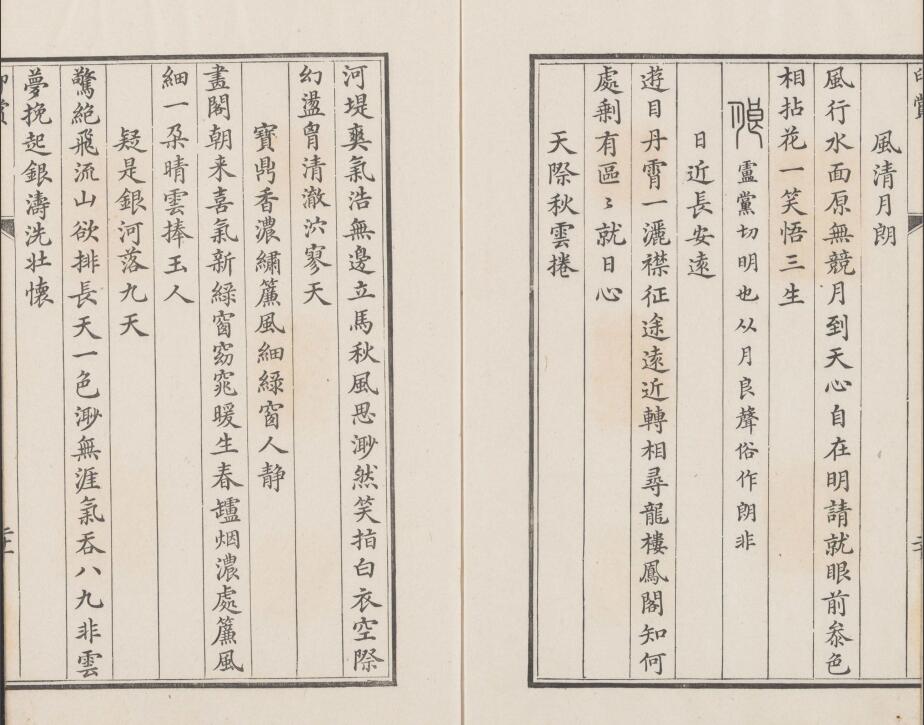 風清月朗
風行水面原無競月到天心自在明請就眼前叅色
相拈花一笑悟三生
盧黨切明也从月良聲俗作朗非
日近長安遠
遊目丹霄一灑襟征途遠近轉相尋龍樓鳳閣知何
處剩有區〻就日心
天際秋雲捲
河堤爽氣浩無邊立馬秋風思渺然笑指白衣空際
幻盪胷清澈泬寥天
寶鼎香濃繡簾風細綠窗人靜
畫閣朝来喜氣新綠窗窈窕暖生春罏烟濃處簾風
細一朶晴雲捧玉人
疑是銀河落九天
驚絶飛流山欲排長天一色渺無涯氣吞八九非雲
夢挽起銀濤洗壮懷